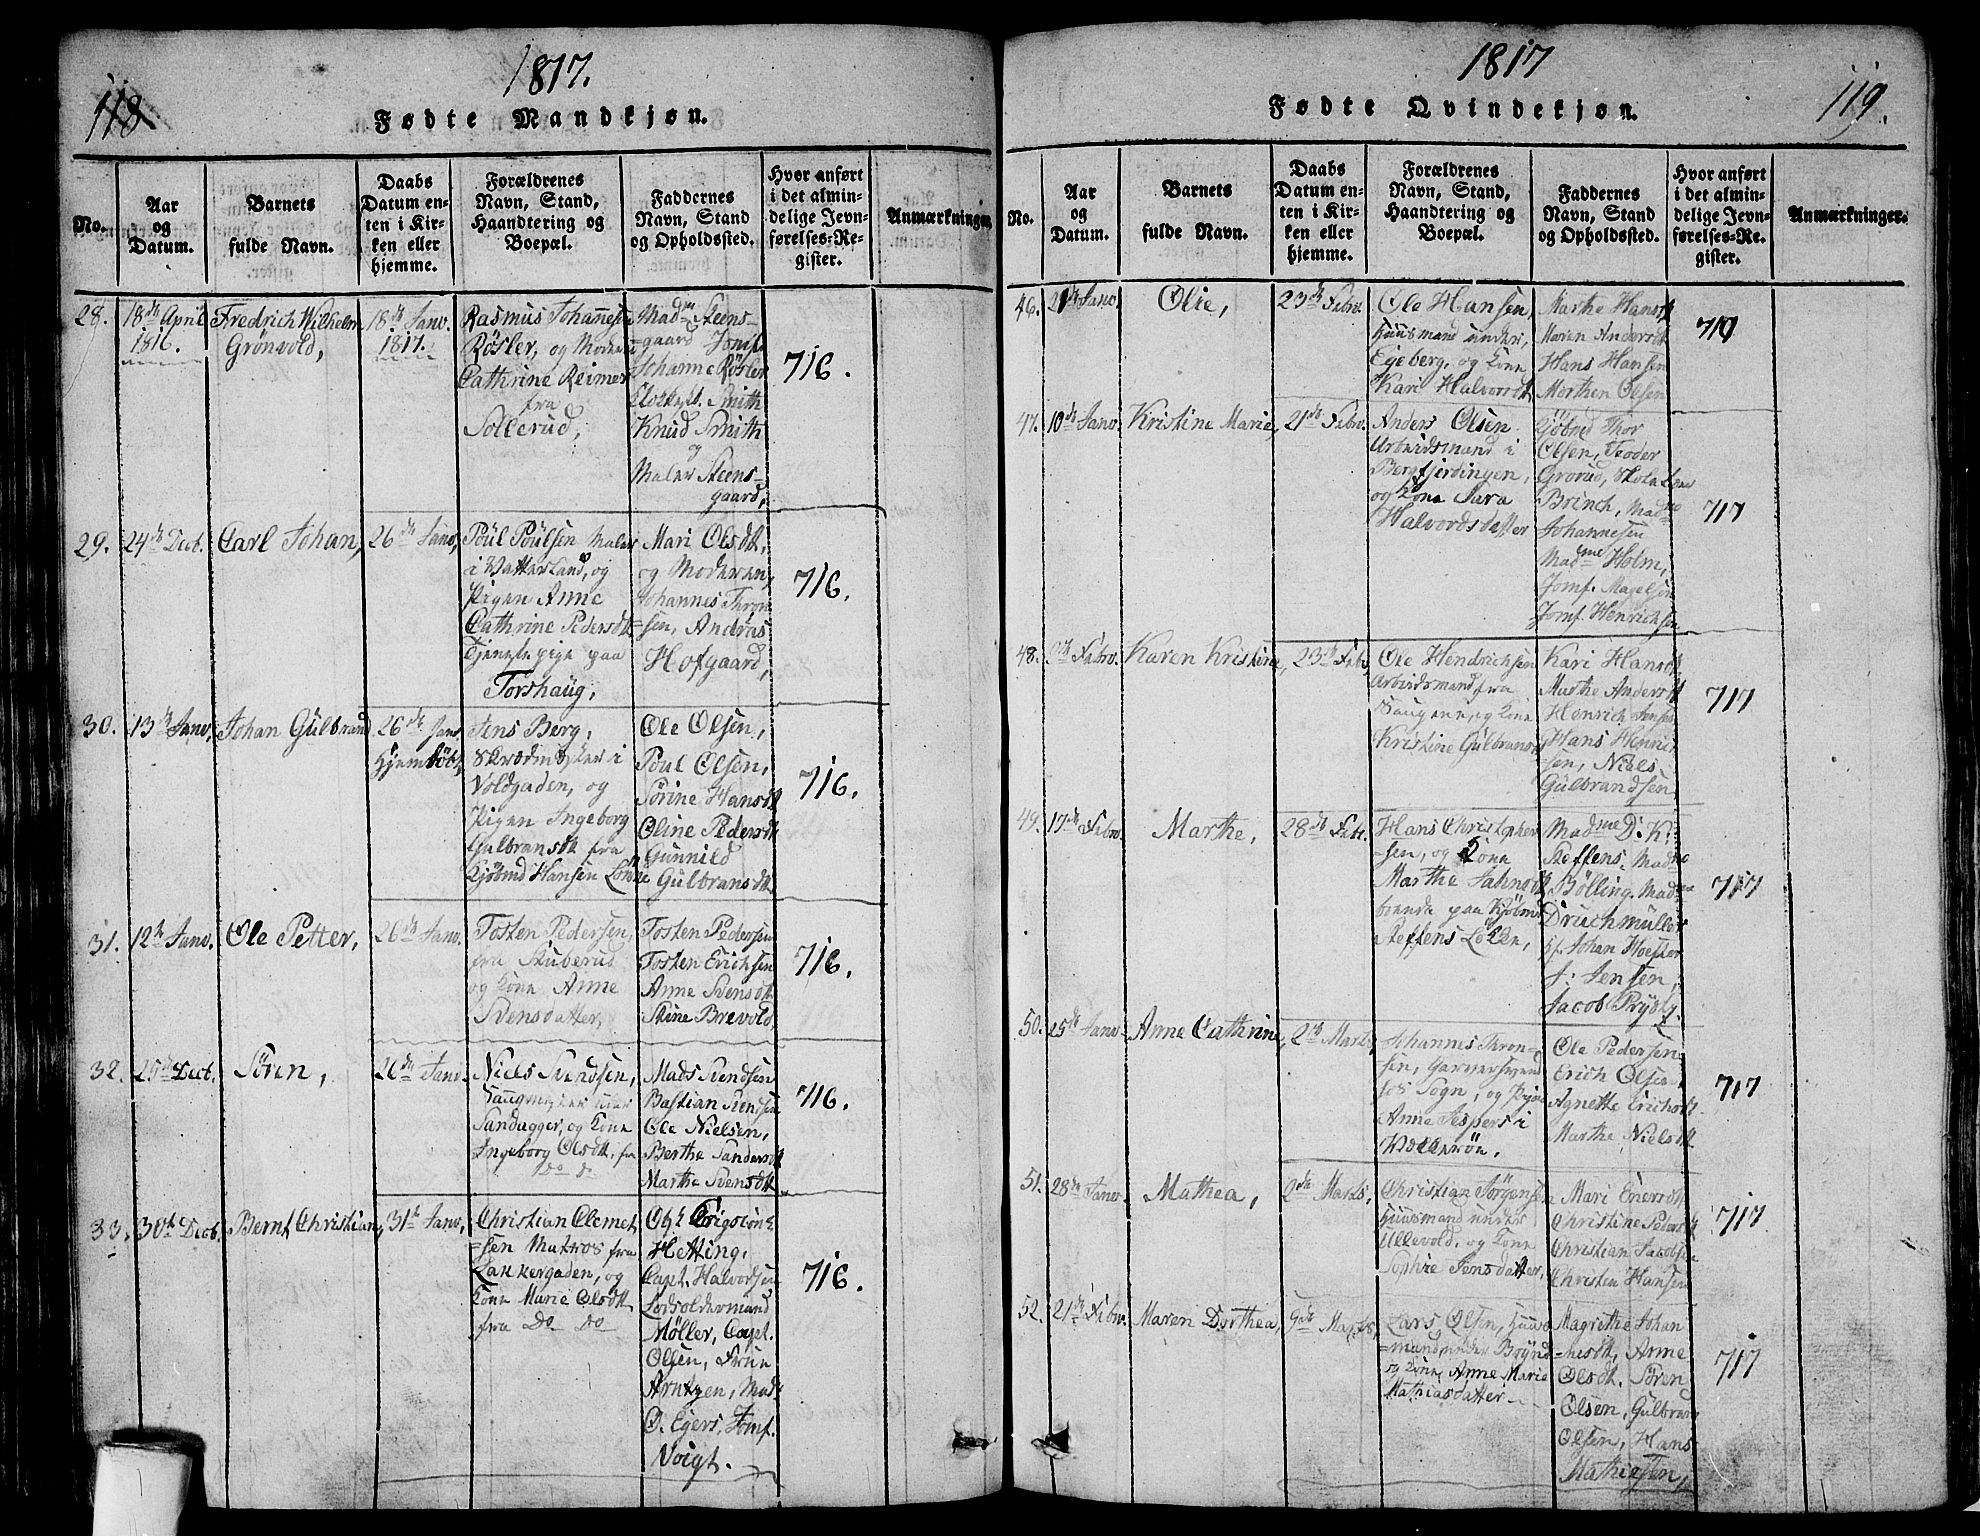 118
1817.
Fødte Mandkjøn.
No.
Aar
og
Datum.
Barnets
fulde Navn.
Daabs
Datum en-
ten i Kir-
ken eller
hjemme.
Forældrenes
Navn, Stand,
Haandtering og
Boepæl.
Faddernes
Navn, Stand
og Opholdssted.
Hvor anført
i det almin-
delige Jevn-
førelses-Re-
gister.
Anmærkninger.
28.
18de April
1816.
Fredrich Wilhelm
Grønvold,
18de Janv.
1817.
Rasmus Johannesen
Røsler, og Moderen
Cathrine Reimer
fra
Sollerud,
Madm Steens-
gaard Jomf.
Johanne Røsler
Smith
Knud Smith
og
Maler Steens-
gaard,
716.
29.
24de Decb.
Carl Johan,
26de Janv,
Poul Poulsen Maler
i Vatterland, og
Pigen Anne
Cathrine Pedersdtt
Tjenestepige paa
Torshaug,
Mari Olsdtt,
og Moderen,
Johannes Thron
sen, Andras
Hofgaard,
716.
30.
13de Janv,
Johan Gulbrand
26de Janv
Hjemdøbt,
Jens Berg,
Skrædmester i
Voldgaden, og
Pigen Ingeborg
Gulbransdtt fra
Kjøbmd Hansen
Ole Olsen,
Poul Olsen,
Sørine Hansdtt
Oline Pedersdtt
Gunnild
Gulbransdtt
716.
31.
12te Janv.
Ole Petter,
26de Janv.
Tosten Pedersen,
fra Skuberud
og Kone Anne
Svensdatter,
Tosten Pedersen
Tosten Erichsen
Anne Svensdtt
Stine Brevold,
716.
32.
25de Decb.
Søren,
26de Janv.
Niels Svendsen,
Saugmester
Sandagger, og Kone
Ingeborg Olsdtt, fra
do do
Mads Svendsen
Bastian Svendsen
Ole Nielsen,
Berthe Sandersdtt
Marthe Svensdtt
716.
33.
30te Decb.
Bernt Christian,
31te Janv,
Christian Clemet
=sen Matros fra
Lakkergaden, og
Kone Marie Olsdtt
fra Do Do
Hetting,
Capt. Halvorsen
Lodsoldermand
Møller, Capt.
Olsen, Frue
Arntzen, Mad.
O. Egers, Jomf.
Voigt.
716.
1817
119.
Fødte Qvindekjøn.
No.
Aar
og
Datum.
Barnets
fulde Navn.
Daabs
Datum en-
ten i Kir-
ken eller
hjemme.
Forældrenes
Navn, Stand,
Haandtering og
Boepæl.
Faddernes
Navn, Stand
og Opholdssted.
Hvor anført
i det almin-
delige Jevn-
førelses-Re-
gister.
Anmærkninger.
46.
Janv.
Olie,
23de Febv.
Ole Hansen,
Huusmand under,
Egeberg, og Kone
Kari Halvorsdtt
Marthe Hansdtt
Maren Andersdtt
Hans Hansen
Morthen Olsen
710
47.
10de Janv.
Kristine Marie,
21de Febv.
Anders Olsen
Arbeidsmand i
Bergfjerdingen,
og Kone Sara
Halvordsdatter
Gjøbmd Thor
Olsen, Teoder
Grorud, Skole
Brinch, Madme
Johannesen
Madme Holm,
Jomf. Magelsen
Jomf. Henrichsen
717
48.
Febv.
Karen Kristine,
23de Febv,
Ole Hendrichsen
Arbeidsmand fra
Saugene, og Kone
Kristine Gulbrans
Kari Hansdtt,
Marthe Andersdtt
Henrich Jensen
Hans Henrich
sen, Niels
Gulbrandsen
717
49.
17de Febv.
Marthe,
28de Febr.
Hans Christopher
=sen, og Kone
Marthe
boende paa Kjøbmd
Steffens Løkken,
Madme D. K.
Steffens, Madme
Bølling, Madme
Druchmüller
Johan Hoefker
J: Jensen,
Jacob
717
50.
25de Janv.
Anne Cathrine,
2de Marts,
Johannes Thron-
sen,
Sogn, og Pigen
Anne Jespers i
Ole Pedersen
Erich Olsen,
Agnethe Erichsdtt.
Marthe Nielsdtt
717
51.
28de Janv.
Mathea,
2de Marts,
Christian Jørgensen
Huusmand under
Ullevold, og Kone
Sophie Jensdatter,
Mari Enersdtt
Christine Pedersdtt
Christian Jacobsen
Christen Hansen
717
52.
21de Febv.
Maren Dorthea,
9de Marts,
Lars Olsen, Huus
=mand under Brynd
og Kone Anne Marie
Mathiasdatter
Magrethe Johan
=nesdtt, Anne
Olsdt. Søren
Olsen, Gulbrand
Olsen, Hans
Mathiesen,
717